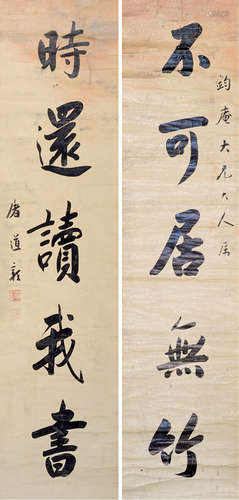 鈞庵大兄大人屬
不可居無竹
時還讀我書
屠道彰